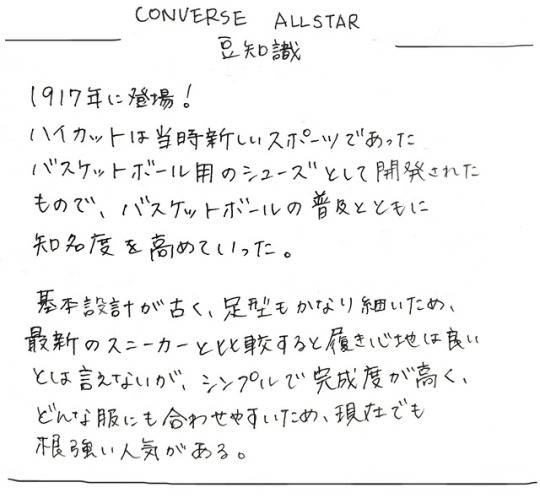 CONVERSE ALLSTAR
豆知識
1917年に登場!
ハイカットは当時新しいスポーツであった
バスケットボール用のシューズとして開発された
もので、バスケットボールの普及とともに
知名度を高めていった。
基本設計が古く、足型もかなり細いため、
最新のスニーカーと比較すると履き心地は良い
とは言えないが、シンプルで完成度が高く、
どんな服にも合わせやすいため、現在でも
根強い人気がある。